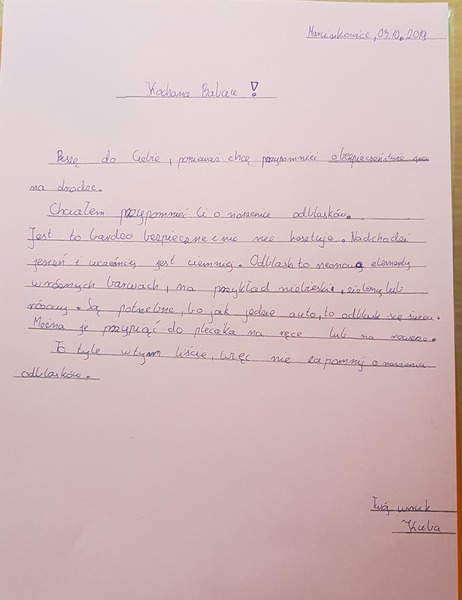 Marcinkowice, 09.10.2019
Kochana Babciu !
Piszę do Ciebie, ponieważ chcę przypomnieć o bezpieczeństwie na
na drodze.
Chciałem przypomnieć Ci o noszeniu odblasków.
Jest to bardzo bezpieczne i nic nie kosztuje. Nadchodzi
jesień i wcześniej jest ciemniej. Odblask to neonowe elementy
w różnych barwach, na przykład niebieski, zielony lub
różowy. Są potrzebne, bo jak jedzie auto, to odblask się świeci.
Można je przypiąć do plecaka na ręce lub na rowerze.
To tyle w tym liście, więc nie zapomnij o noszeniu
odblasków.
Twój wnuk
Kuba